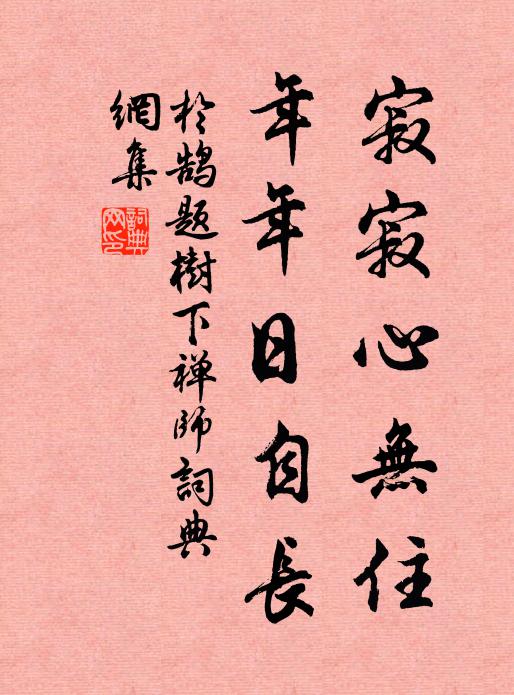 寂寂心無住
年年日自長
於鵠題樹下禅師詞典
網集
詞典
网印